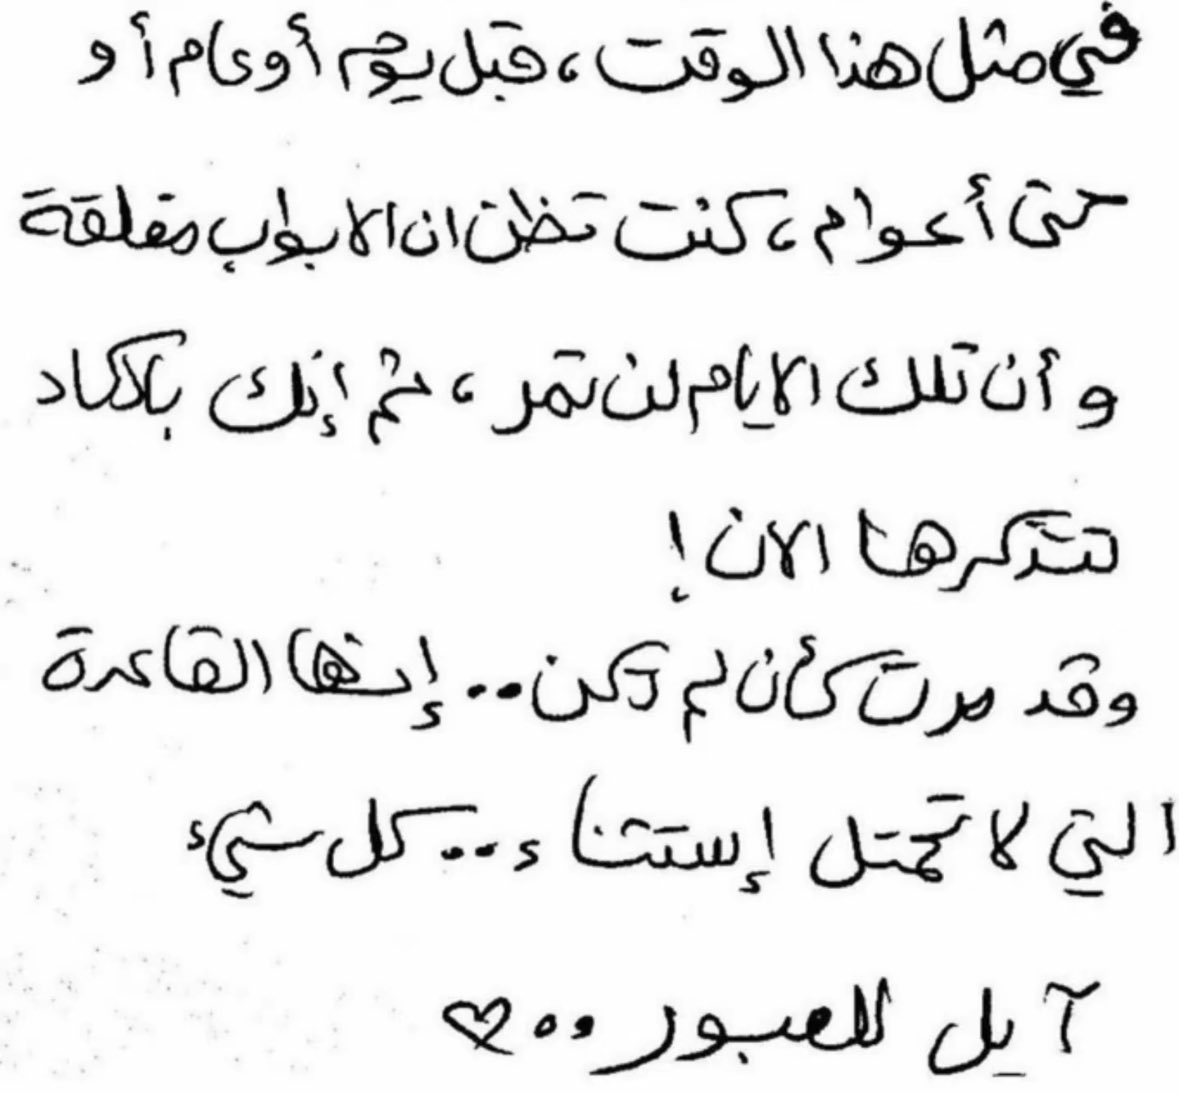 في مثل هذا الوقت، قبل يوم أو عام أو
حتى أعوام، كنت تظن ان الابواب مغلقة
وأن تلك الايام لن تمر، ثم إنك بالكاد
تتذكرها الان!
وقد مرت كأن لم تكن.. إنها القاعدة
التي لا تحتمل إستثناء.. كل شيء
آيل للعبور..♡